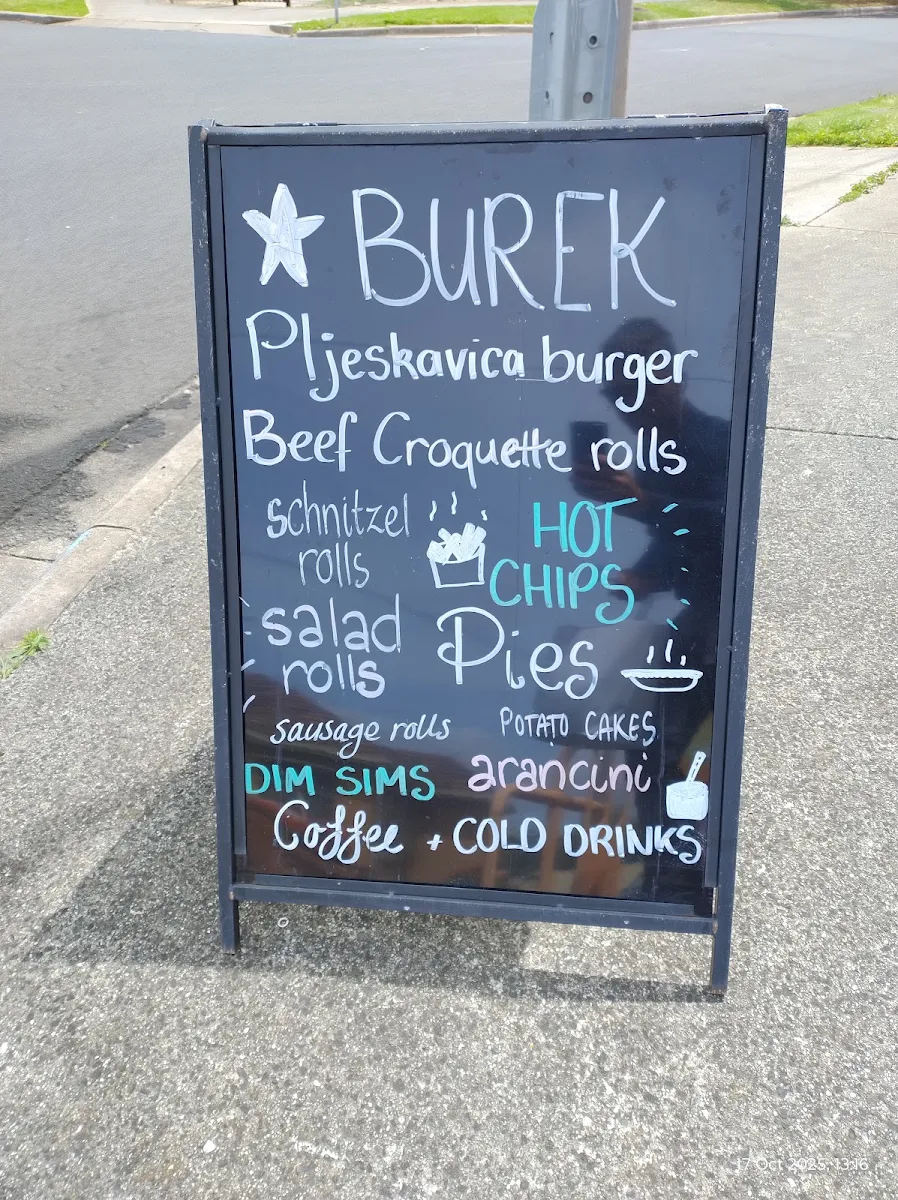 BUREK
Pljeskavica burger
Beef Croquette rolls
schnitzel
rolls
HOT
CHIPS
salad
rolls
Pies
sausage rolls
POTATO CAKES
DIM SIMS
arancini
Coffee + COLD DRINKS
17 Oct 2025, 13:16